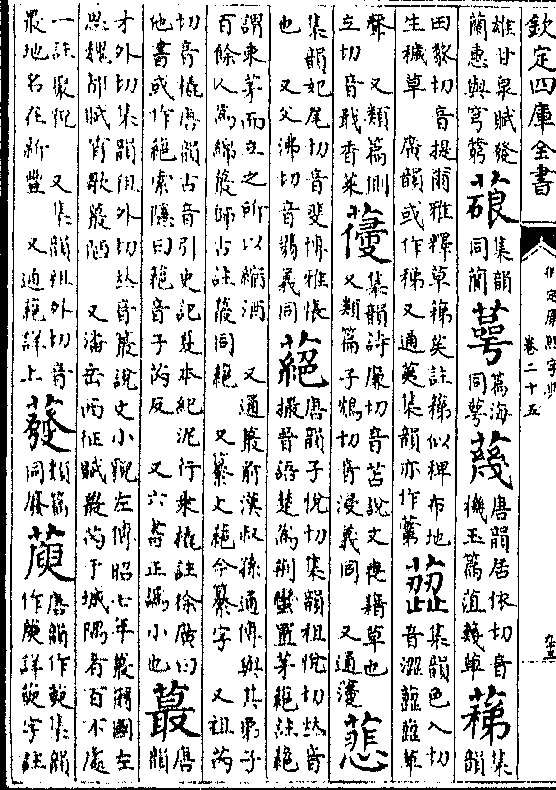 欽定四庫全書
御定康熙字典
卷二十五
雄甘泉賦發
蘭惠與穹藭
集韻
同蘭
蕚
篇海
同萼
唐韻居依切音
機玉篇菹草
蕛
集
韻
田黎切音提爾雅釋草蕛苵註蕛似稗布地
生穢草 廣韻或作稊又通荑集韻亦作
集韻色入切
音澀草
聲 又類篇側
立切音戢香菜
集韻詩廉切音苫說文喪藉草也
又類篇子鴆切音浸義同 又通寖
蕜
集韻妃尾切音斐博雅悵
也 又父沸切音翡義同
蕝
唐韻子悅切集韻祖悅切𠀤音
撮晉語楚為荆蠻置茅蕝註蕝
謂束茅而立之所以縮酒 又通蕞前漢叔孫通傳與其弟子
百餘人為綿蕞師古註蕞同蕝 又纂文蕝今纂字 又祖芮
切音橇唐韻古音引史記夏本紀泥行乘橇註徐廣曰
他書或作蕝索隱曰蕝音子芮反 又六書正譌小也
蕞
唐
韻
才外切集韻徂外切𠀤音叢說文小貌左傳昭七年蕞爾國左
思魏都賦宵貌蕞陋 又潘岳西征賦蕞芮于城隅者百不處
一註聚貌 又集韻祖外切音
最地名在新豐 又通蕝詳上
蕟
類篇
同廢
唐韻作集韻
作庾詳字註